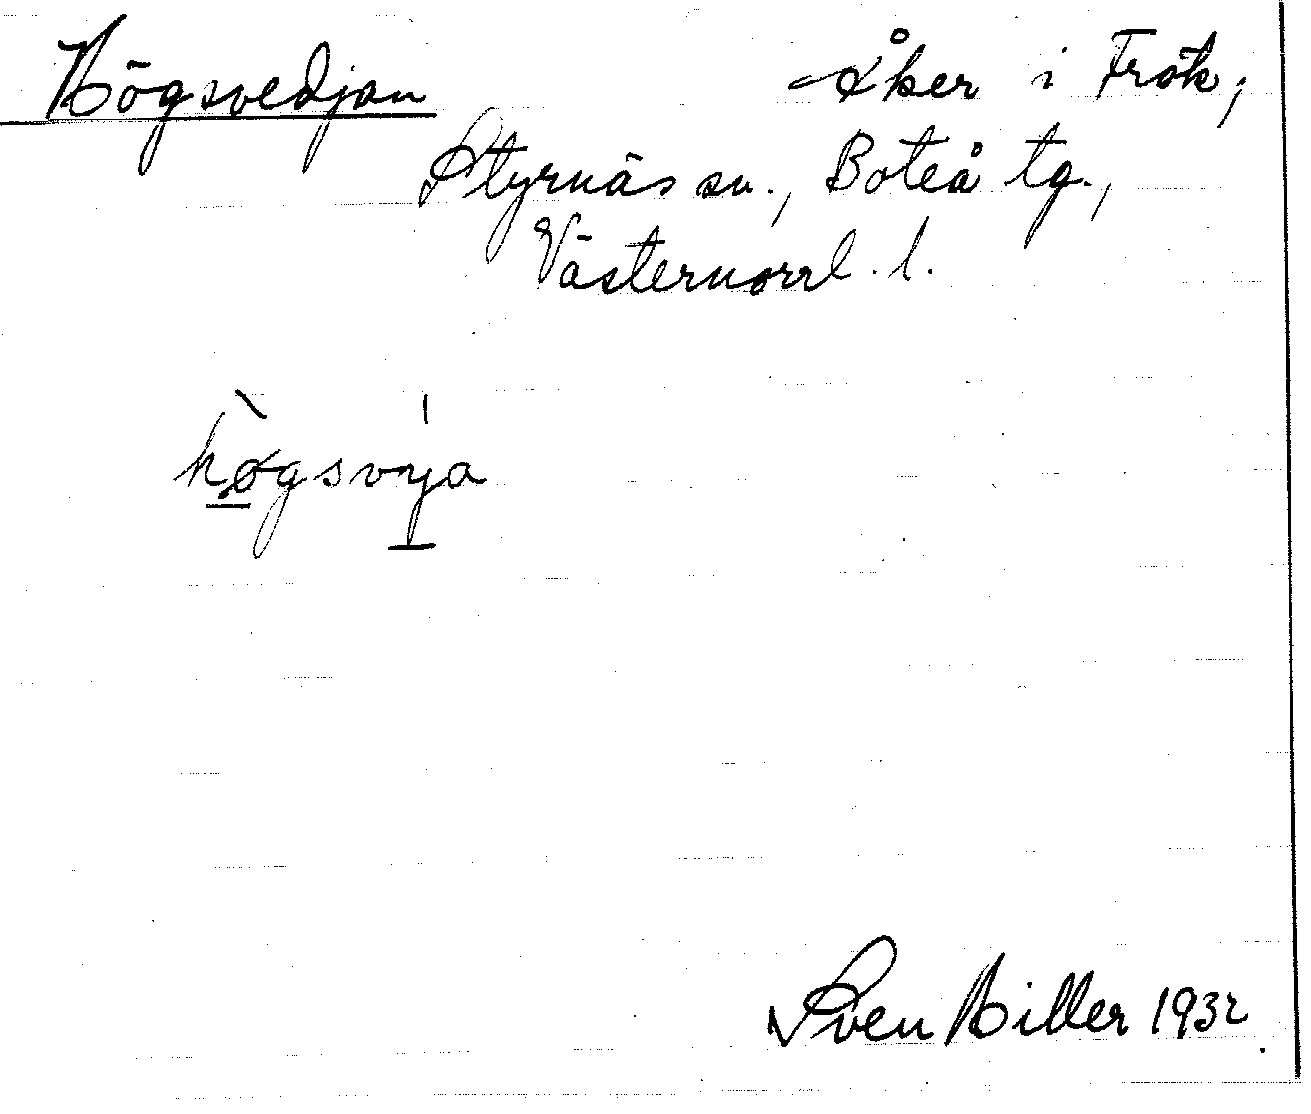 Högsvedjan
Åker i Frök;
Styrnäs sn., Boteå tg.,
Västernorrl. l.
høgsvya
Sven Hiller 1932